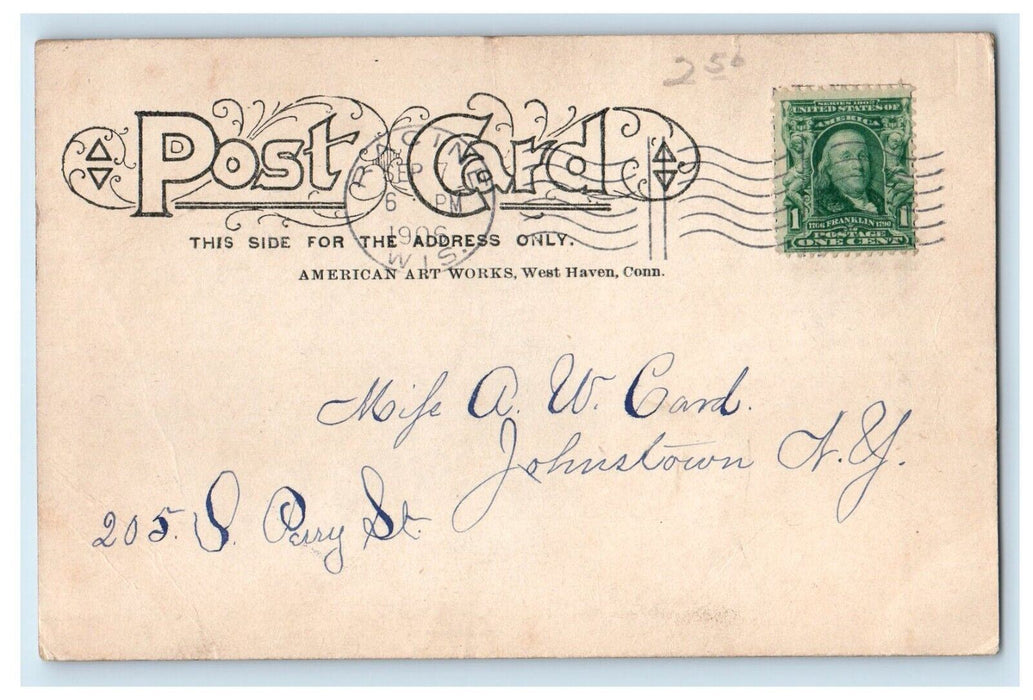 2 50
Post Card
RACINE
SEP 7
6 PM
1906
WIS.
THIS SIDE FOR THE ADDRESS ONLY.
AMERICAN ART WORKS, West Haven, Conn.
SERIES 1902
UNITED STATES OF
AMERICA
1 1766 FRANKLIN 1790 1
POSTAGE
ONE CENT
Miſs A. W. Card.
Johnstown N.Y.
205. S. Perry St.